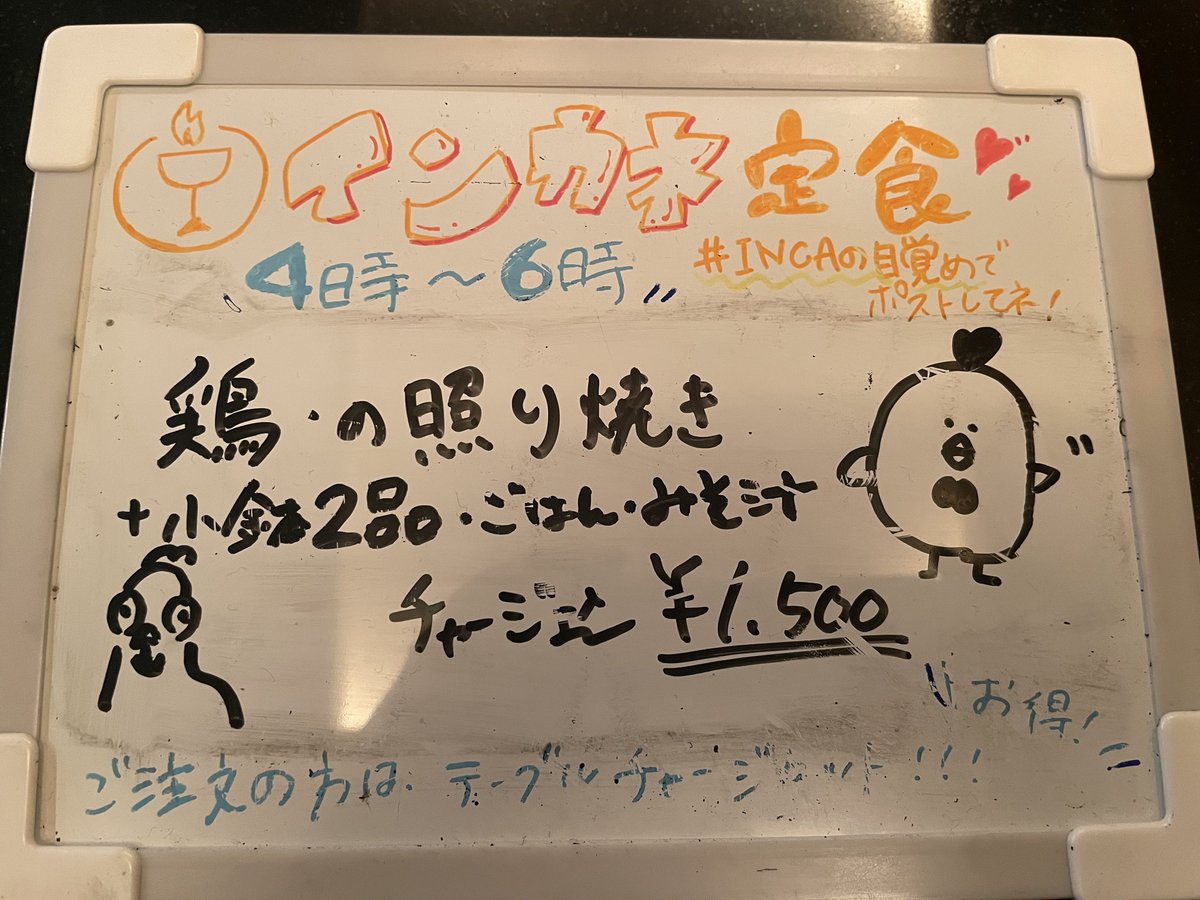 インカネ定食
4時～6時
#INCAの目覚めで
ポストしてネ!
鶏の照り焼き
+小鉢2品・ごはん・みそ汁
チャージ込 ¥1,500
お得!
ご注文の方はテーブルチャージカット!!!